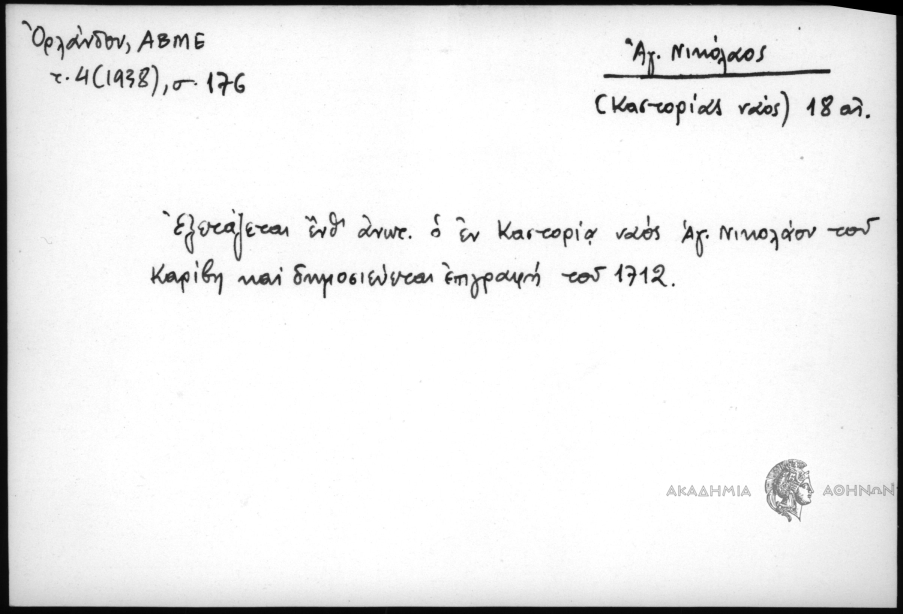 Ὀρλάνδου, ΑΒΜΕ
τ. 4(1938), σ. 176
Ἅγ. Νικόλαος
(Καστορίας ναός) 18 αι.
Ἐξετάζεται ἔνθ' ἀνωτ. ὁ ἐν Καστορίᾳ ναός Ἁγ. Νικολάου τοῦ
Καρίβη καί δημοσιεύεται ἐπιγραφή τοῦ 1712.
ΑΚΑΔΗΜΙΑ ΑΘΗΝΩΝ